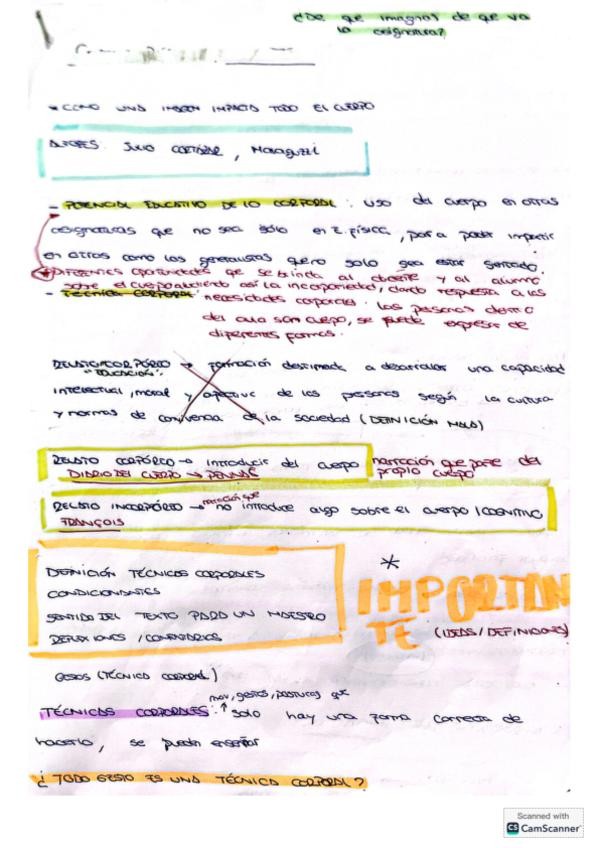 ¿De que imaginas de que va
la asignatura?
* COMO UNA IMAGEN IMPACTA TODO EL CUERPO
AUTORES: JULIO CORTÁZAR, Malaguzzi
- POTENCIAL EDUCATIVO DE LO CORPORAL: USO del cuerpo en otras
asignaturas que no sea sólo en E. física, para poder impartir
en otras como las generalistas que no solo sea estar sentado.
* DIFERENTES oportunidades que se brinda al docente y al alumno
sobre el cuerpo, dando respuesta a las
- TÉCNICA CORPORAL: necesidades corporales. Las personas dentro
del aula son cuerpo, se puede expresar de
diferentes formas.
RELATO CORPÓREO → formación destinada a desarrollar una capacidad
"EDUCACIÓN":
intelectual, moral y afectiva de las personas según la cultura
y normas de convivencia de la sociedad (DEFINICIÓN MALA)
RELATO CORPÓREO → introducir del cuerpo narración que parte del
propio cuerpo
DIARIO DEL CUERPO → PENNAC
RELATO INCORPÓREO → narración que no introduce algo sobre el cuerpo / COGNITIVO
FRANÇOIS
DEFINICIÓN TÉCNICAS CORPORALES
CONDICIONANTES
SENTIDO DEL TEXTO PARA UN MAESTRO
REFLEXIONES / COMENTARIOS
*
IMPORTANTE
(IDEAS / DEFINICIONES)
GESTOS (TÉCNICA CORPORAL)
mov, gestos, posturas que
TÉCNICAS CORPORALES: ↑ solo hay una forma correcta de
hacerlo, se pueden enseñar
¿TODO GESTO ES UNA TÉCNICA CORPORAL?
Scanned with
CS CamScanner